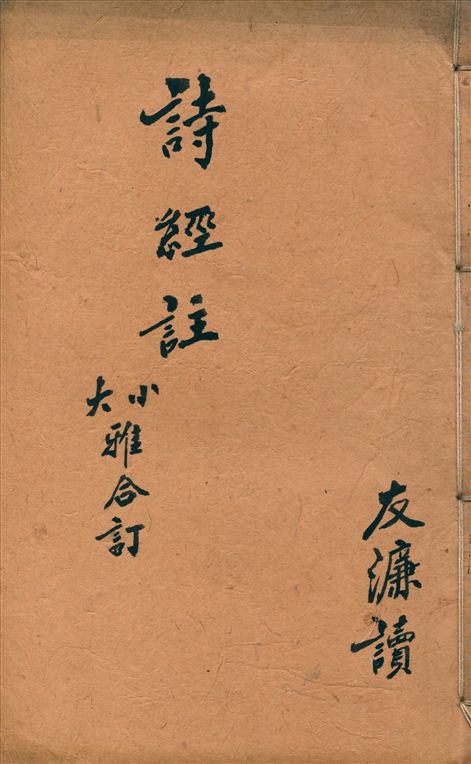 友濂讀
詩經註
小大雅合訂